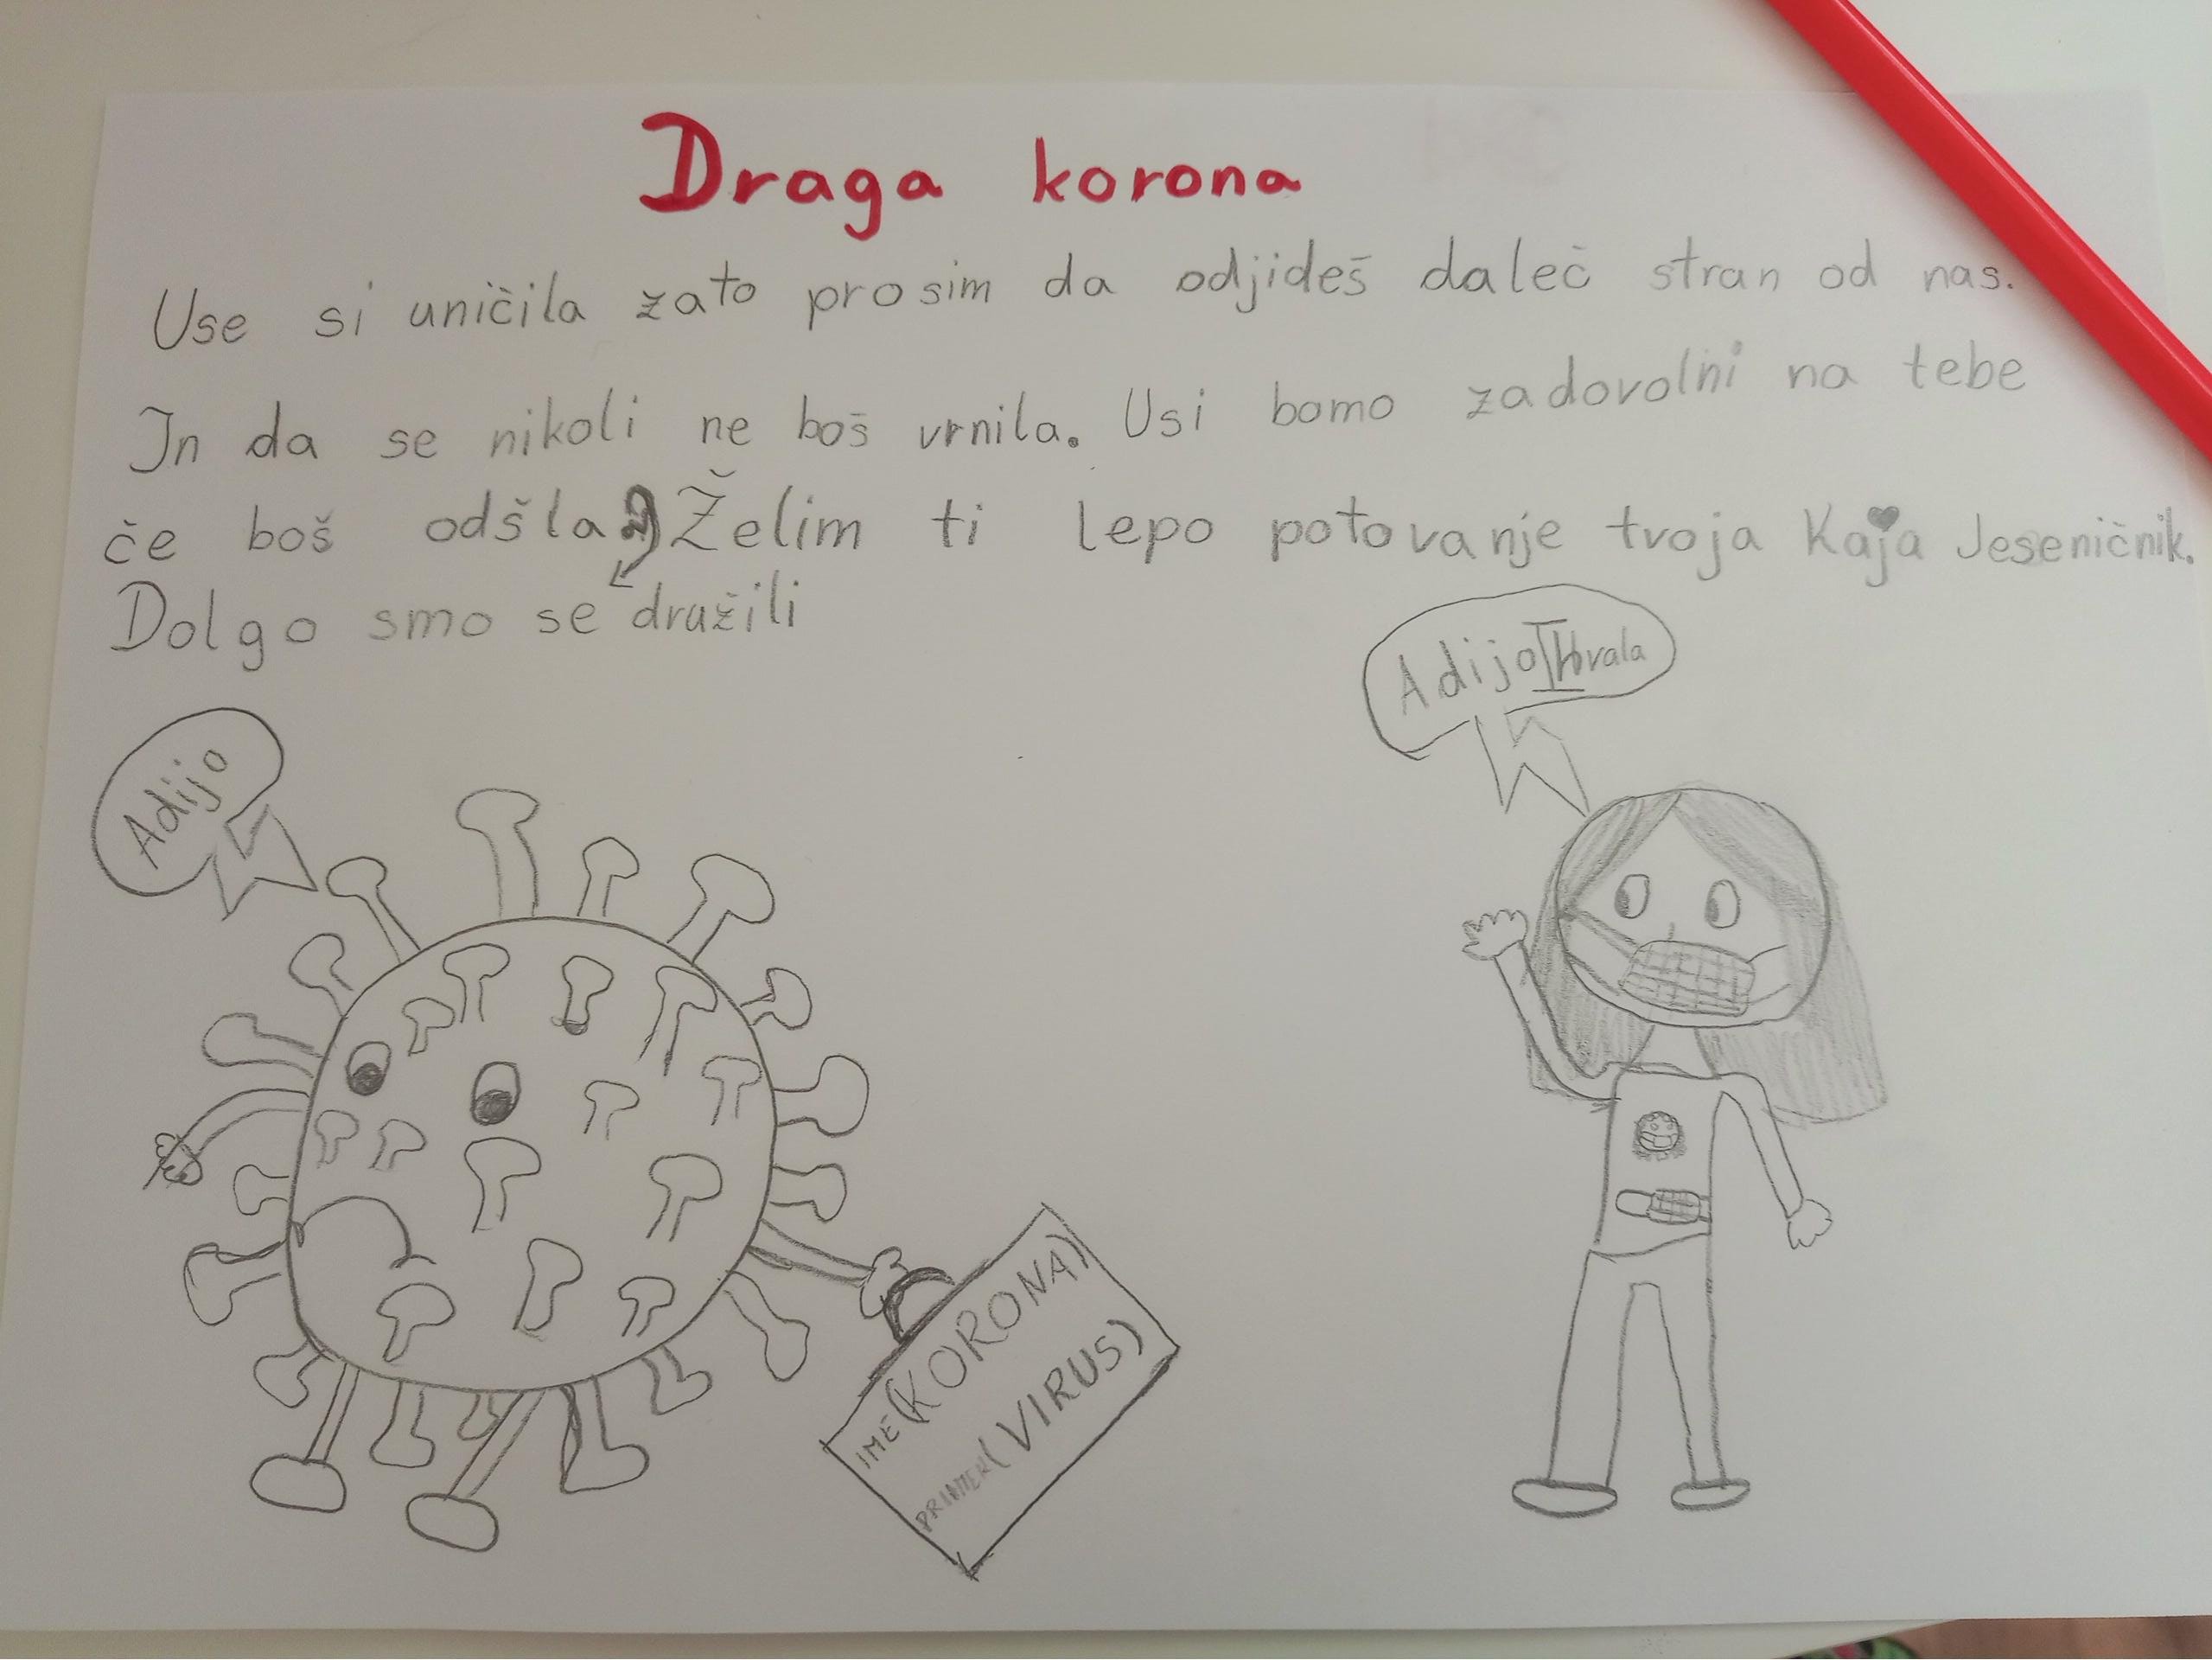 Draga korona
Use si uničila zato prosim da odjideš daleč stran od nas.
In da se nikoli ne boš vrnila. Usi bomo zadovolni na tebe
če boš odšla Želim ti lepo potovanje tvoja Kaja Jeseničnik.
Dolgo smo se družili
Adijo Hvala
Adijo
IME (KORONA)
PRIIMEK (VIRUS)